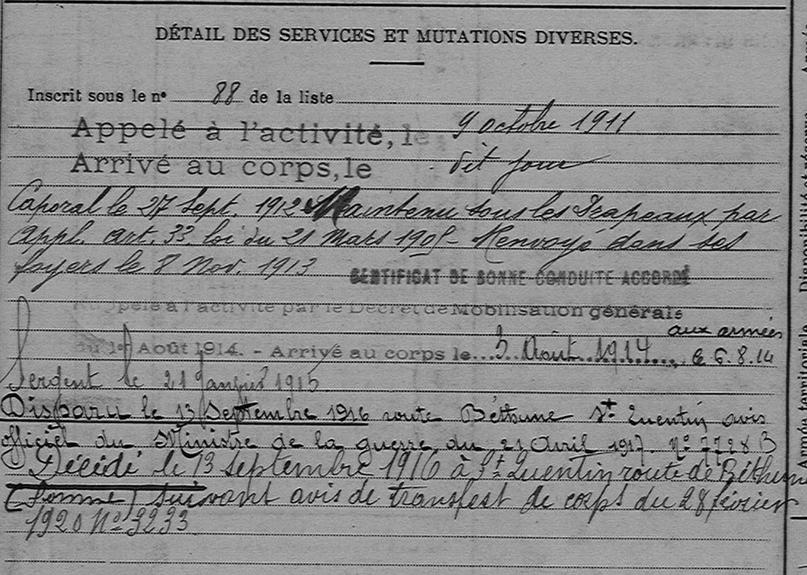 DÉTAIL DES SERVICES ET MUTATIONS DIVERSES.
Inscrit sous le nº 88 de la liste
Appelé à l'activité, le 9 octobre 1911
Arrivé au corps, le dit jour
Caporal le 27 Sept. 1912 Maintenu sous les Drapeaux par
appl. art. 33 loi du 21 Mars 1905 - Renvoyé dans ses
foyers le 8 Nov. 1913 CERTIFICAT DE BONNE CONDUITE ACCORDÉ
Rappelé à l'activité par le Décret de Mobilisation générale
aux armées
du 1er Août 1914. - Arrivé au corps le... 3 Août 1914...., le 6.8.14
Sergent le 21 Janvier 1915
Disparu le 13 Septembre 1916 route Béthune St Quentin avis
officiel du Ministre de la guerre du 21 Avril 1917. Nº 7728 B
Décédé le 13 septembre 1916 à St Quentin route de Béthune
(Somme) suivant avis de transfert de corps du 28 février
1920 Nº 9233